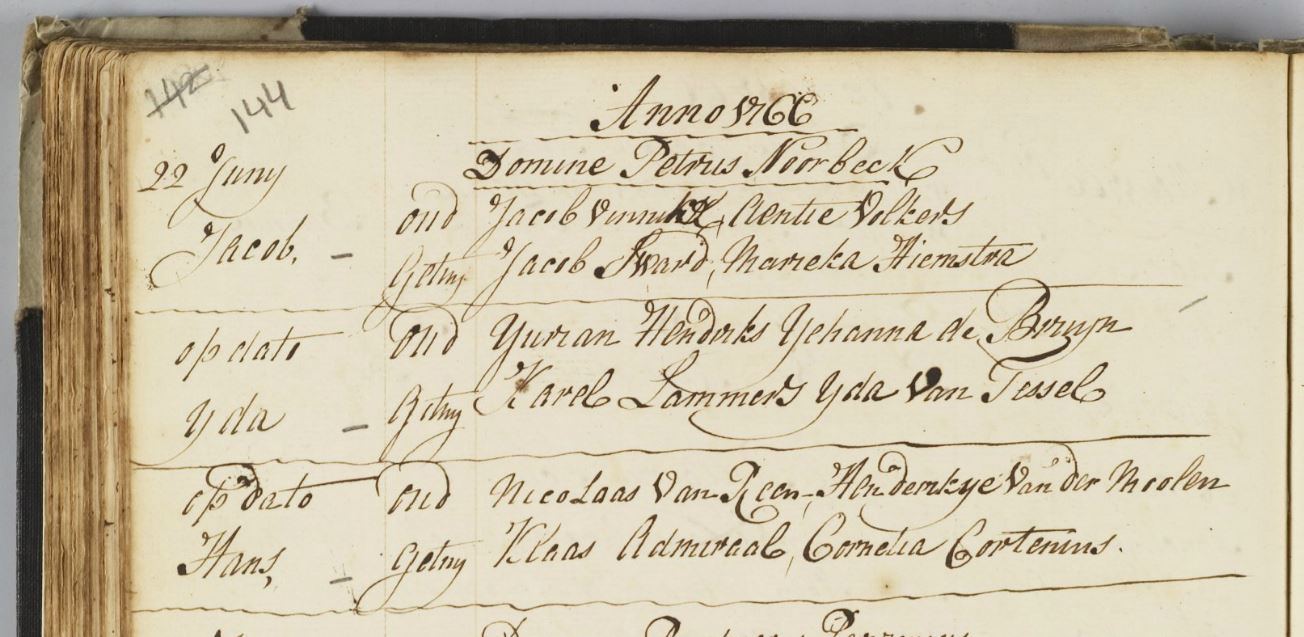 142
144
Anno 1766
Domine Petrus Noorbeck
22 Juny oud Jacob Vinnikx, Aentie Volkers
Jacob, - Getuy Jacob Sward, Marieka Hiemstra
op dato oud Yurian Henderks Yohanna de Bruyn
Yda - Getuy Karel Lammers Yda Van Tessel
op dato oud Nicolaas Van Reen, Henderikye Van der Moolen
Hans, - Getuy Klaas Admiraal, Cornelia Cortenius.